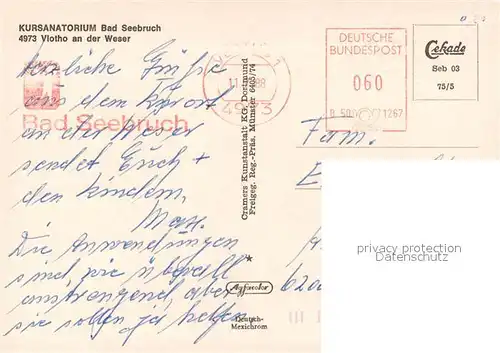 KURSANATORIUM Bad Seebruch
4973 Vlotho an der Weser
Herzliche Grüße
aus dem Kurort
an der Weser
sendet Euch +
den Kindern,
Max.
Die Anwendungen
sind wie überall
anstrengend, aber
sie sollen ja helfen.
Bad Seebruch
11.
4973
DEUTSCHE
BUNDESPOST
060
1267
Cekade
Seb 03
75/5
Cramers Kunstanstalt KG, Dortmund
Freigeg. Reg.-Präs. Münster 6403/74
Fam.
E
6200
privacy protection
Datenschutz
Agfacolor
Deutsch-
Mexichrom